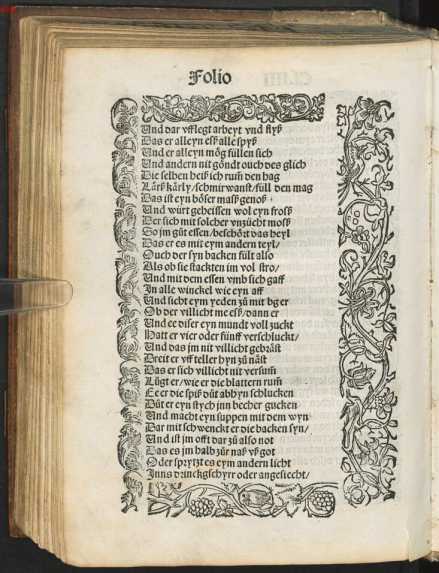 Folio
Und dar vff legt arbeyt vnd flyß
Das er alleyn eß alle spyß
Und er alleyn mög füllen sich
Und andern nit göndt ouch des glich
Die selben heiß ich rum den hag
Lärß kärly/schmirwanst/füll den mag
Das ist eyn böser maß genoß
Und würt geheissen wol eyn froß
Der sich mit solcher vnzücht moß
So jm güt essen/beschört das heyl
Das er es mit eym andern teyl/
Ouch der syn backen fült also
Als ob sie stackten im vol stro/
Und mit dem essen vmb sich gaff
In alle winckel wie eyn aff
Und sicht eym yeden zü mit bger
Ob der villicht me eß/dann er
Und ee diser eyn mundt voll zuckt
Hatt er vier oder fünff verschluckt/
Und das jm nit villicht gebräst
Dreit er vff teller hyn zü näst
Das er sich villicht nit versum
Lügt er/wie er die blattern rum
Ee er die spiß düt abhyn schlucken
Düt er eyn stych jnn becher gucken
Und macht eyn suppen mit dem wyn
Dar mit schwenckt er die backen syn/
Und ist jm offt dar zü also not
Das es jm halb zür naß vß got
Oder sprytzt es eym andern licht
Inns drinckgschyrr oder angesiecht/